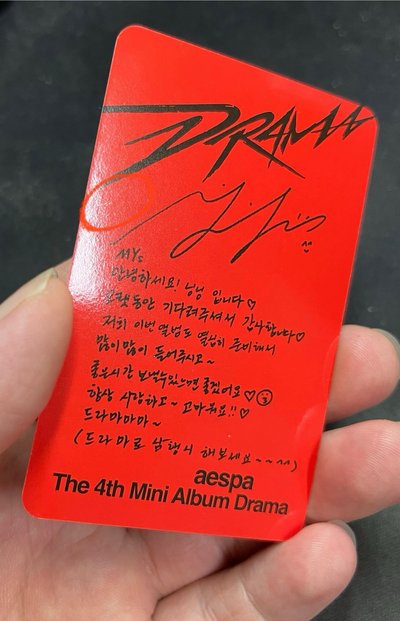 DRAMA
MYs
안녕하세요! 닝닝 입니다♡
오랫동안 기다려주셔서 감사합니다♡
저희 이번 앨범도 열심히 준비해서
많이많이 들어주시요~
좋은시간 보낼수있으면 좋겠어요♡☺
항상 사랑하고~ 고마워요!!♡
드라마마마~
(드라마로 삼행시 해보세요~~^^)
aespa
The 4th Mini Album Drama